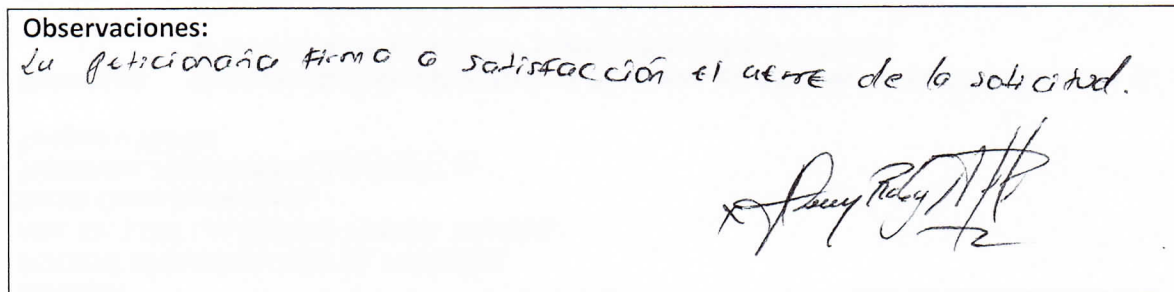 Observaciones:
La peticionaria firma a satisfacción el cierre de la solicitud.
x